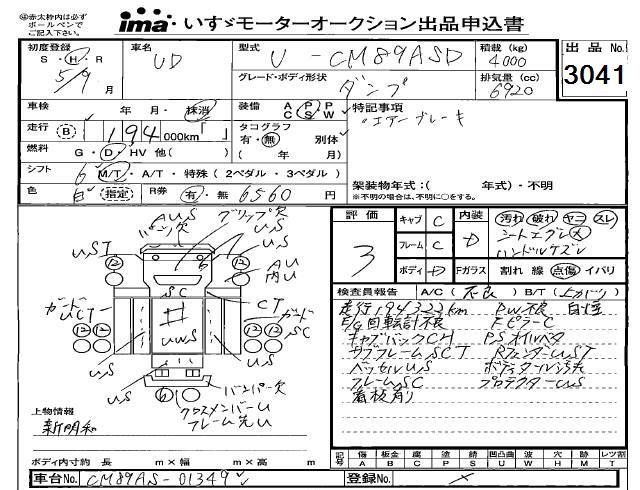 ㊟赤太枠内は必ず
ボールペンで
ご記入下さい。
ima いすゞモーターオークション出品申込書
初度登録 S・H・R 5/9月
車名 UD
型式 U-CM89ASD
積載(kg) 4000
出品No. 3041
グレード・ボディ形状 ダンプ
排気量(cc) 6920
車検 年 月・抹消
装備 A P P C S W
特記事項
エアーブレーキ
走行 B 194000km「 」
タコグラフ 有・無 別体
燃料 G・D・HV 他( ) ( 年 月)
シフト 6 M/T・A/T・特殊(2ペダル・3ペダル)
架装物年式:( 年式)・不明
※不明の場合は、不明に○をする。
色 白 指定 R券 有・無 6560円
評価 3
キャブ C
フレーム C
ボディ D
内装 D 汚れ 破れ ヤニ スレ
シートエグレ大
ハンドルケズレ
Fガラス 割れ 線 点傷 イバリ
検査員報告 A/C(不良) B/T(上がり)
走行194322km PW不良 白煙
E/G回転計不良 FピラーC
キャブバックCH PSオイルベタ
サブフレームSCT RフェンダーUST
ベッセルUS
フレームSC プロテクターUS
看板有り
AUS
グリップ欠
バンパー欠
US
UST
⑫ ⑫
AU
内U
SC
CT
ガード
UCT
ガード
SC
⑫ ⑫
UWS
US
US
US
⑥
バンパー欠
クロスメンバーU
フレーム先U
上物情報
新明和
ボディ内寸約 長 m×幅 m×高 m
記号 傷A 板金B 腐C 塗P 錆S 凹凸曲U 波W 穴H 跡M レツ割T
車台No. CM89AS-01349
登録No.